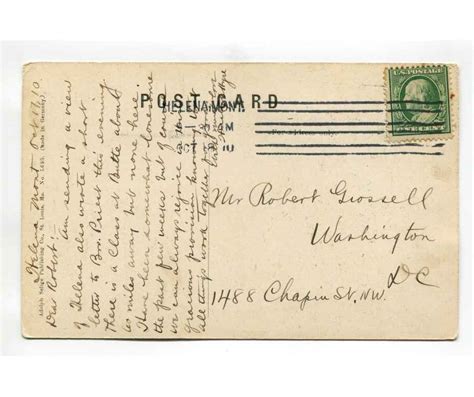 POST CARD
HELENA, MONT.
AM
OCT
10
U.S. POSTAGE
ONE CENT
For address only.
Mr Robert Grossell
Washington
DC
1488 Chapin St. N.W.
Helena Mont Oct 17, 10
Dear Robert:-
I am sending a view
of Helena also wrote a short
letter to Bro. Priest this evening
there is a Class at Butte about
miles away but none here
Have been somewhat lonesome
the past few weeks but of course
we can always rejoice in our
gracious provision knowing that
all things work together for good